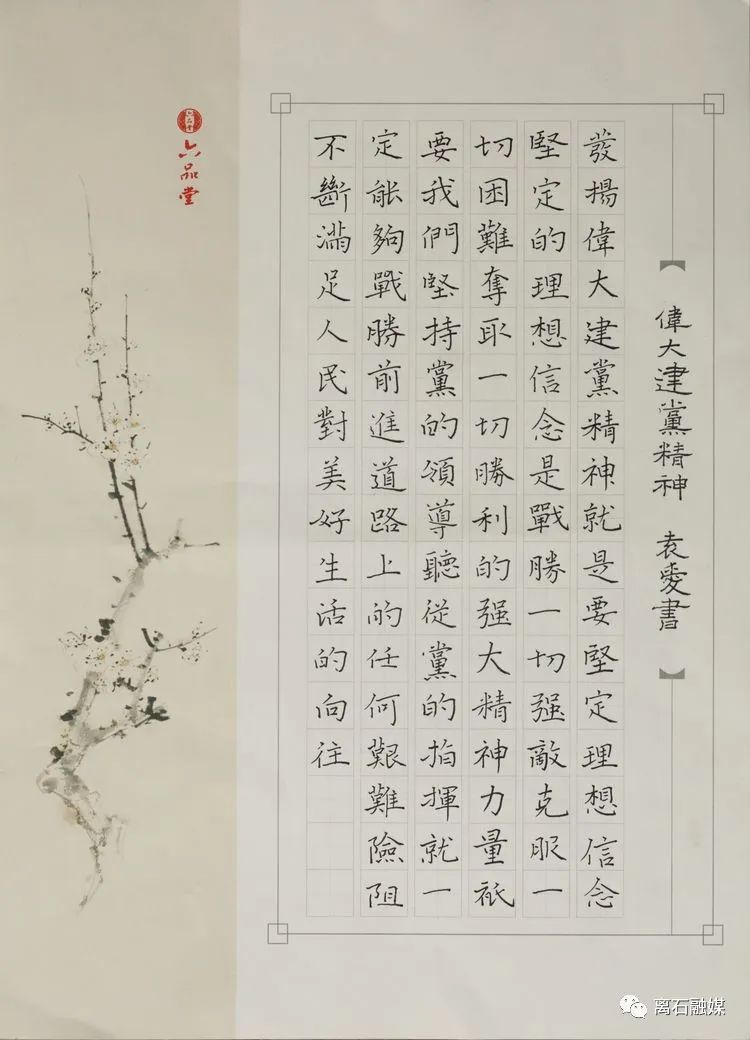 偉大建黨精神 袁愛書
發揚偉大建黨精神就是要堅定理想信念
堅定的理想信念是戰勝一切强敵克服一
切困難奪取一切勝利的强大精神力量祇
要我們堅持黨的領導聽從黨的指揮就一
定能夠戰勝前進道路上的任何艱難險阻
不斷滿足人民對美好生活的向往
六品堂
离石融媒